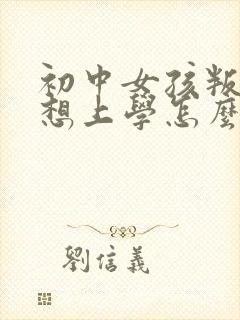 初中女孩叛
想上學怎麼
劉信義